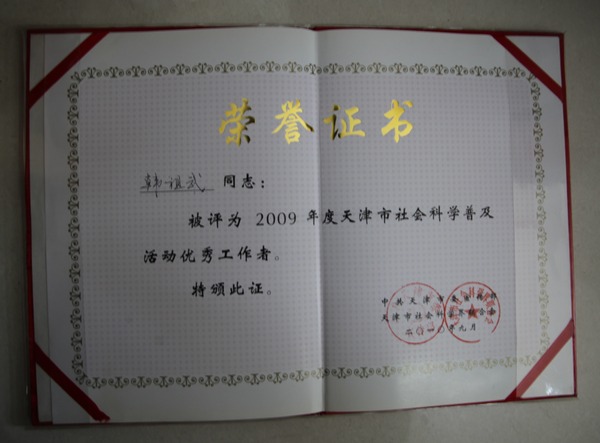 荣誉证书
韩祖武 同志：
被评为 2009 年度天津市社会科学普及
活动优秀工作者。
特颁此证。
中共天津市委宣传部
天津市社会科学界联合会
二〇一〇年九月